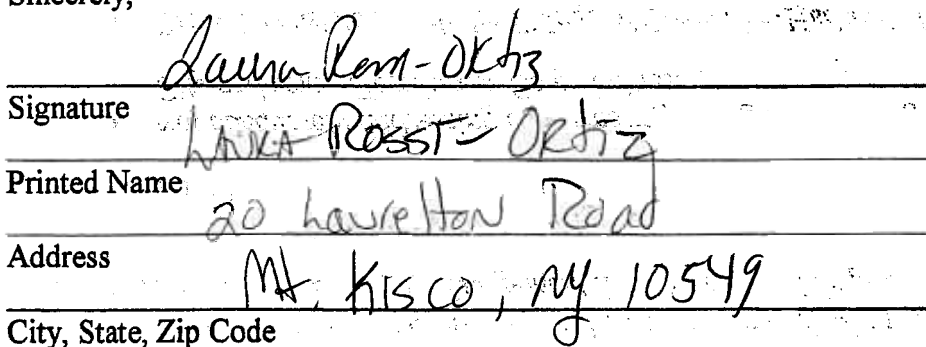 Sincerely,
Laura Rossi-Ortiz
Signature
LAURA ROSSI-ORtiz
Printed Name
20 Laurelton Road
Address
Mt. Kisco, NY 10549
City, State, Zip Code